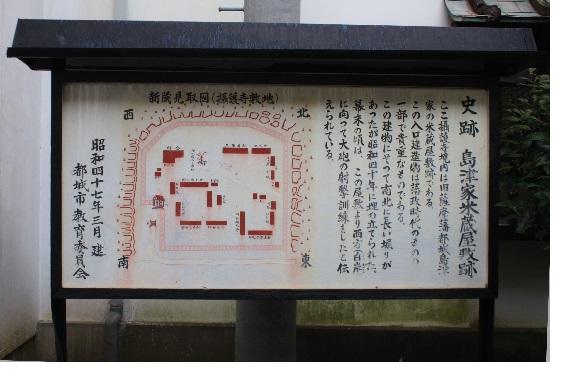 史跡 島津家米蔵屋敷跡
ここ摂護寺境内は旧薩摩藩都城島津
家の米蔵屋敷跡である
この入口建造物は藩政時代のものの
一部で貴重なものである。
この建物にそって南北に長い堀りが
あったが昭和四十年に埋め立てられた。
幕末の頃は、この屋敷より西方
に向って大砲の射撃訓練をしたと伝
えられている。
新蔵見取図(摂護寺敷地)
北
西
東
南
昭和四十七年三月 建
都城市教育委員会